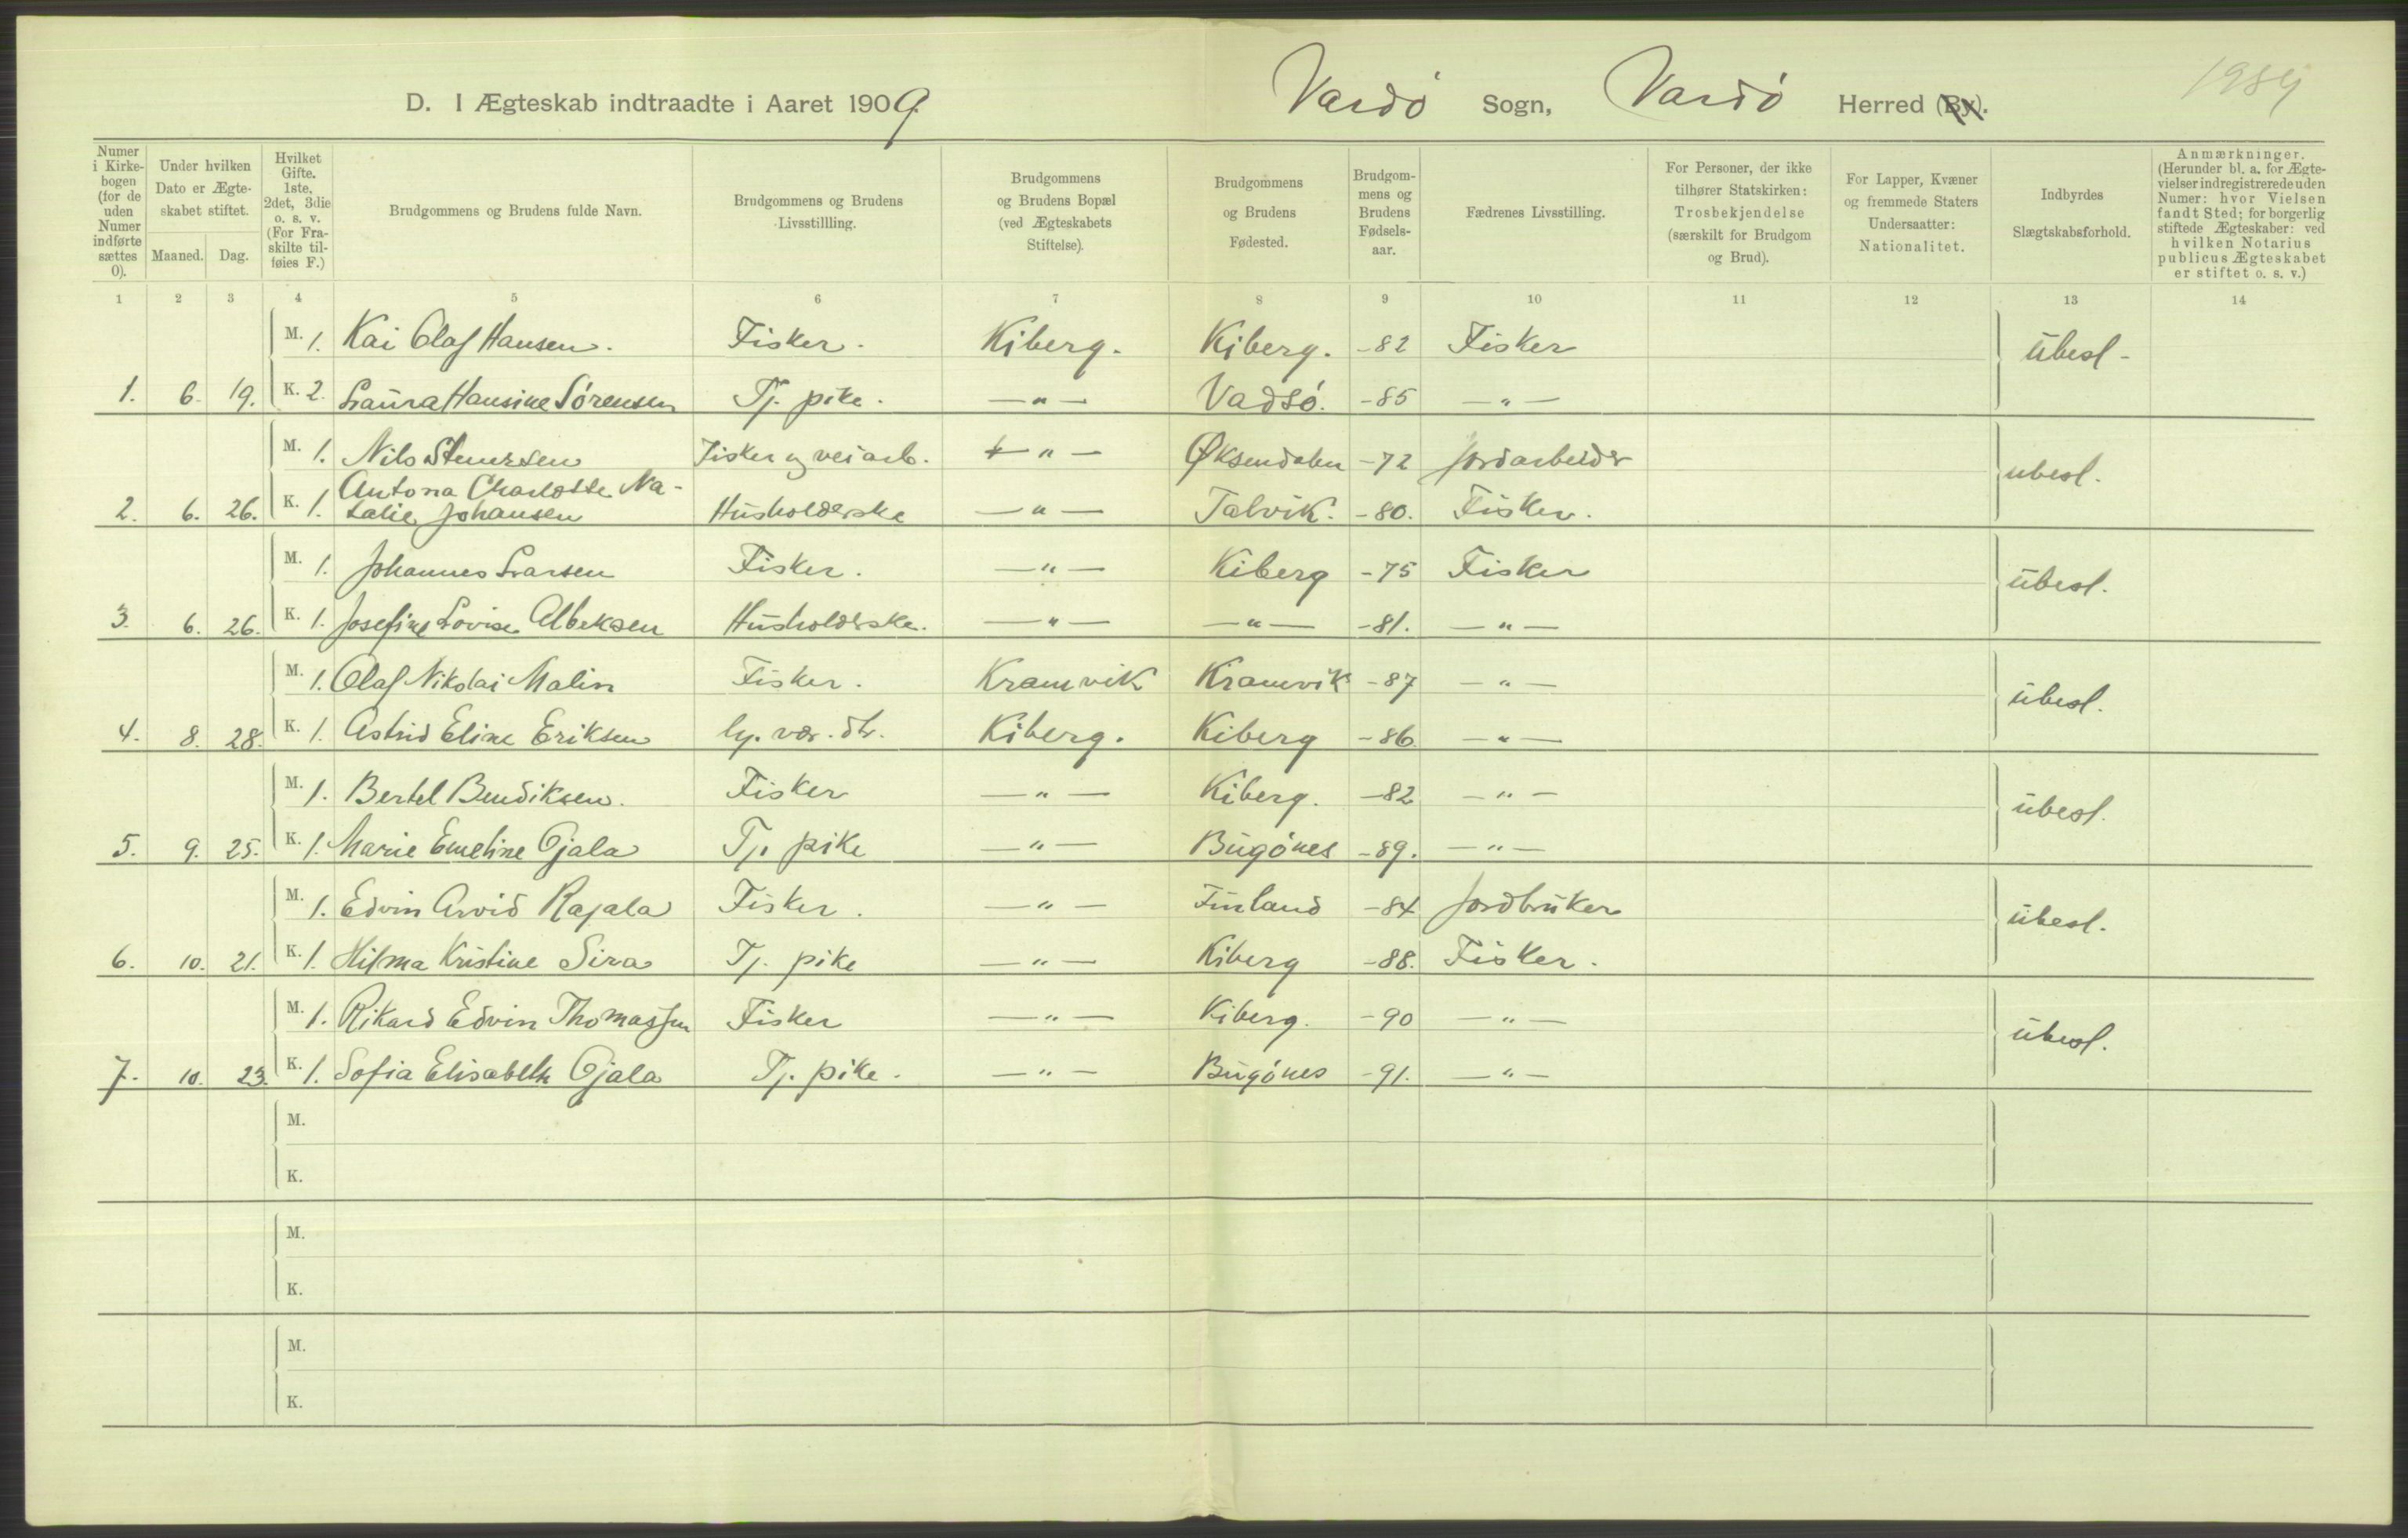 D. I Ægteskab indtraadte i Aaret 1909. Vardø Sogn, Vardø Herred (By). 1984
Numer i Kirkebogen (for de uden Numer indførte sættes 0).
Under hvilken Dato er Ægteskabet stiftet.
Maaned. Dag.
Hvilket Gifte. 1ste, 2det, 3die o. s. v. (For Fraskilte tilføies F.)
Brudgommens og Brudens fulde Navn.
Brudgommens og Brudens Livsstillling.
Brudgommens og Brudens Bopæl (ved Ægteskabets Stiftelse).
Brudgommens og Brudens Fødested.
Brudgommens og Brudens Fødselsaar.
Fædrenes Livsstilling.
For Personer, der ikke tilhører Statskirken: Trosbekjendelse (særskilt for Brudgom og Brud).
For Lapper, Kvæner og fremmede Staters Undersaatter: Nationalitet.
Indbyrdes Slægtskabsforhold.
Anmærkninger. (Herunder bl. a. for Ægtevielser indregistrerede uden Numer: hvor Vielsen fandt Sted; for borgerlig stiftede Ægteskaber: ved hvilken Notarius publicus Ægteskabet er stiftet o. s. v.)
1 2 3 4 5 6 7 8 9 10 11 12 13 14
M. 1. Kai Olaf Hansen. Fisker. Kiberg. Kiberg. -82 Fisker ubesl-
1. 6. 19. K. 2. Laura Hansine Sørensen Tj. pike. —„— Vadsø. -85 —„—
M. 1. Nils Stenersen Fisker og veiarb. —„— Øksendalen -72 Jordarbeider ubesl.
Antona Charlotte Na-
2. 6. 26. K. 1. talie Johansen Husholderske —„— Talvik. -80. Fisker.
M. 1. Johannes Larsen Fisker. —„— Kiberg -75 Fisker ubesl.
3. 6. 26. K. 1. Josefine Lovise Albeksen Husholderske. —„— —„— -81. —„—
M. 1. Olaf Nikolai Malin Fisker. Kramvik Kramvik -87 —„— ubesl.
4. 8. 28. K. 1. Astrid Eline Eriksen Kiberg. Kiberg -86 —„—
M. 1. Bertel Bendiksen. Fisker —„— Kiberg. -82 —„— ubesl.
5. 9. 25. K. 1. Marie Emeline Ojala Tj. pike —„— Bugønes -89. —„—
M. 1. Edvin Arvid Rajala Fisker. —„— Finland -84 Jordbruker ubesl.
6. 10. 21. K. 1. Hilma Kristine Sira Tj. pike —„— Kiberg -88. Fisker.
M. 1. Rikard Edvin Thomassen Fisker —„— Kiberg. -90 —„— ubesl.
7. 10. 23. K. 1. Sofia Elisabeth Ojala Tj. pike. —„— Bugønes -91. —„—
M.
K.
M.
K.
M.
K.